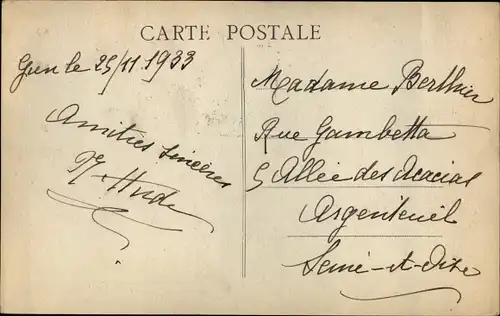 CARTE POSTALE
le 25/11 1933
Amitiés sincères
Madame Berthier
Rue Gambetta
5 Allée des Acacias
Argenteuil
Seine-et-Oise